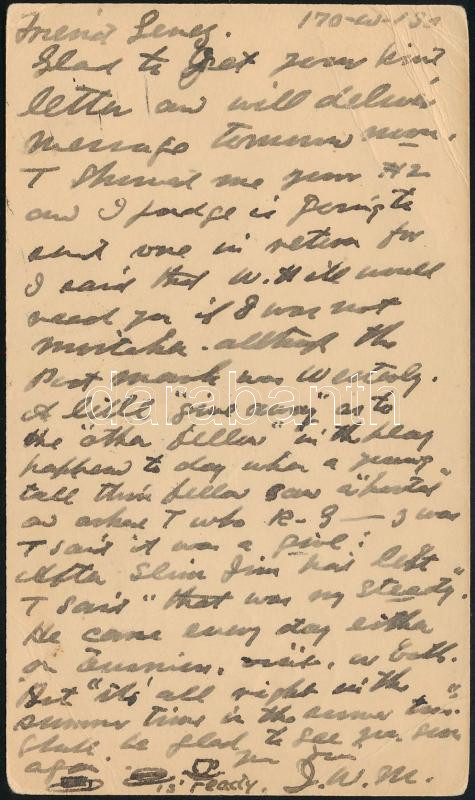 170-W-
Friend
Glad to Get your kind
letter and will deliver
message tomorrow morn.
T showed me your #2
and I judge is going to
send one in return for
I said that W. H. would
read you if I was not
mistaken. although the
Post mark was Westerly.
A little "give away" as to
the "other fellow" in the play
happened to day when a young
tall thin fellow saw a "poster"
and asked T who R-G— was
T said it was a girl!
After Slim Jim had left
T said "that was my steady".
He came every day either
or Evening, or both.
But "it's all right in the
summer time in the summer time"
Shall be glad to see you soon
again
is ready. J. W. M.
darabanth